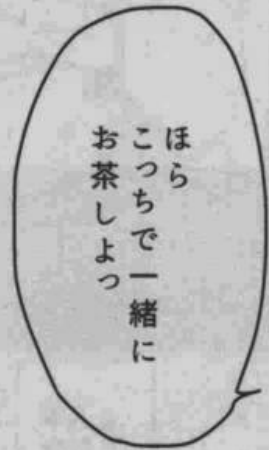 ほら
こっちで一緒に
お茶しよっ